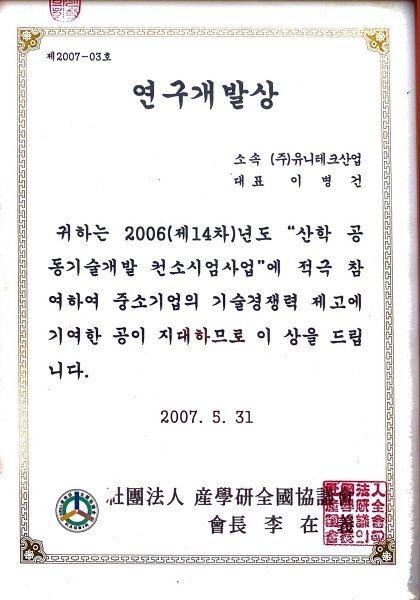 제2007-03호
연구개발상
소속 (주)유니테크산업
대표 이병건
귀하는 2006(제14차)년도 “산학 공
동기술개발 컨소시엄사업”에 적극 참
여하여 중소기업의 기술경쟁력 제고에
기여한 공이 지대하므로 이 상을 드립
니다.
2007. 5. 31
社團法人 産學硏全國協議會
會長 李在